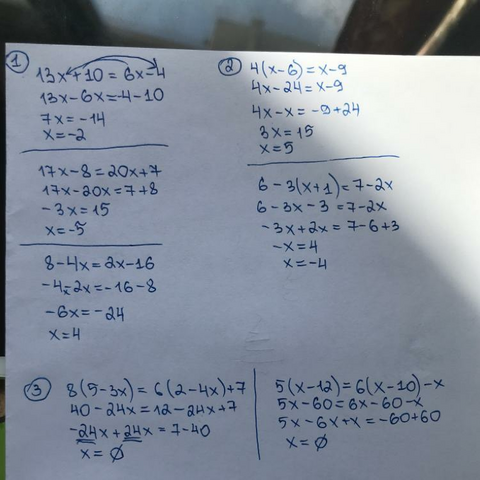 1
13x+10=6x-4
13x-6x=-4-10
7x=-14
x=-2
17x-8=20x+7
17x-20x=7+8
-3x=15
x=-5
8-4x=2x-16
-4x-2x=-16-8
-6x=-24
x=4
2
4(x-6)=x-9
4x-24=x-9
4x-x=-9+24
3x=15
x=5
6-3(x+1)=7-2x
6-3x-3=7-2x
-3x+2x=7-6+3
-x=4
x=-4
3
8(5-3x)=6(2-4x)+7
40-24x=12-24x+7
-24x+24x=7-40
x=∅
5(x-12)=6(x-10)-x
5x-60=6x-60-x
5x-6x+x=-60+60
x=∅